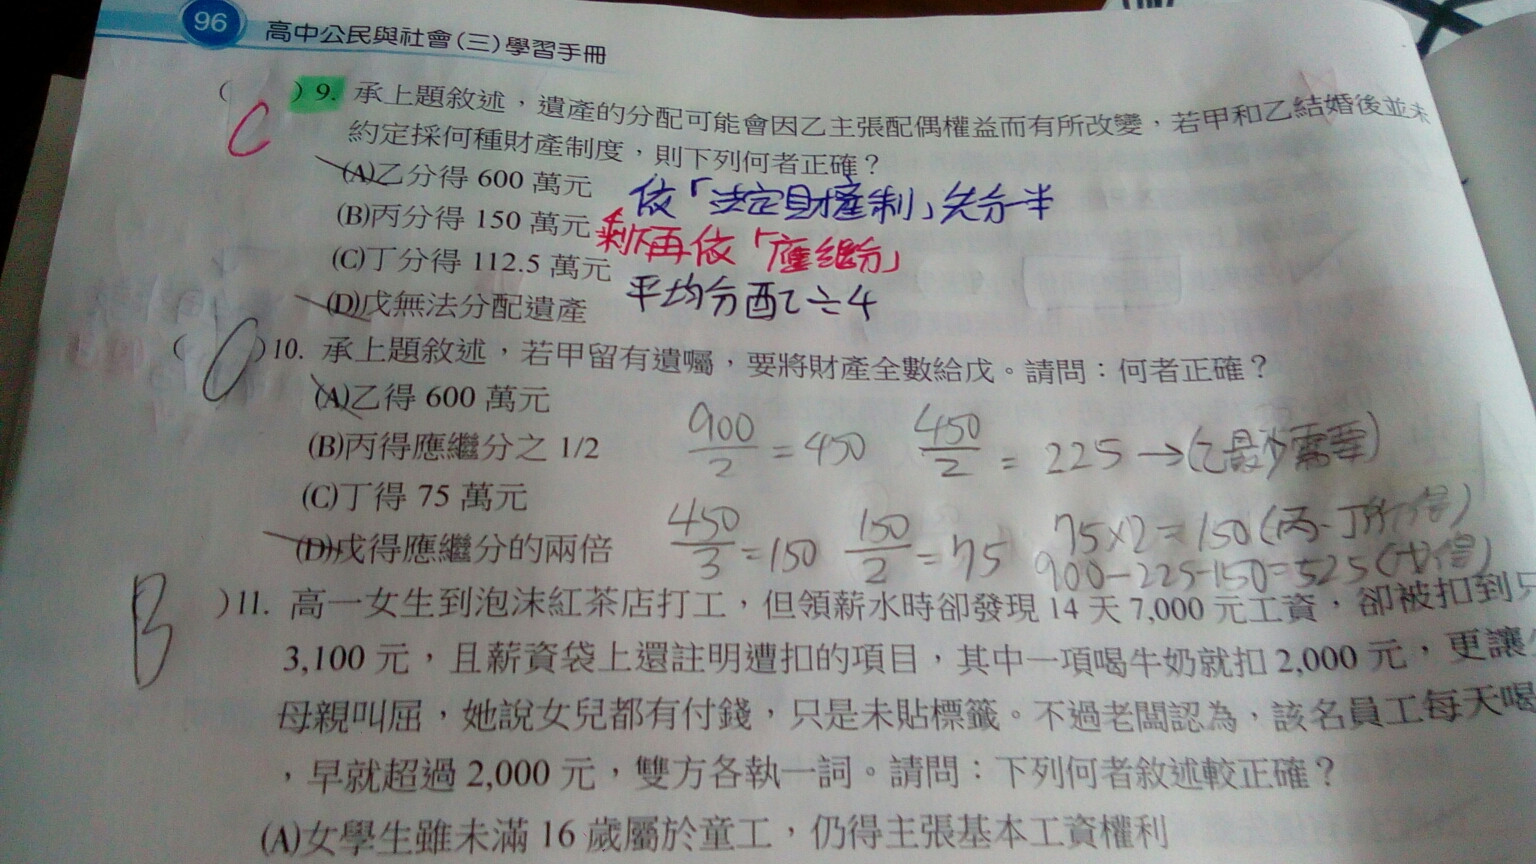 96
高中公民與社會(三)學習手冊
( C )9. 承上題敘述，遺產的分配可能會因乙主張配偶權益而有所改變，若甲和乙結婚後並未
約定採何種財產制度，則下列何者正確？
(A)乙分得 600 萬元
依「法定財產制」先分一半
(B)丙分得 150 萬元
剩下再依「應繼分」
(C)丁分得 112.5 萬元
平均分配 ÷4
(D)戊無法分配遺產
( C )10. 承上題敘述，若甲留有遺囑，要將財產全數給戊。請問：何者正確？
(A)乙得 600 萬元
(B)丙得應繼分之 1/2
900/2 = 450 450/2 = 225 →(乙最少需要)
(C)丁得 75 萬元
(D)戊得應繼分的兩倍
450/3 = 150 150/2 = 75 75×2=150(丙、丁所得)
900-225-150=525(戊得)
B )11. 高一女生到泡沫紅茶店打工，但領薪水時卻發現 14 天 7,000 元工資，卻被扣到只
3,100 元，且薪資袋上還註明遭扣的項目，其中一項喝牛奶就扣 2,000 元，更讓
母親叫屈，她說女兒都有付錢，只是未貼標籤。不過老闆認為，該名員工每天喝
，早就超過 2,000 元，雙方各執一詞。請問：下列何者敘述較正確？
(A)女學生雖未滿 16 歲屬於童工，仍得主張基本工資權利